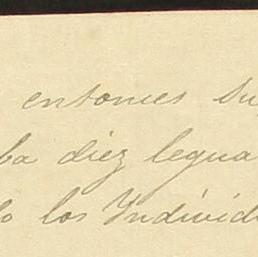 entonces Su
ba diez legua
lo los Individ